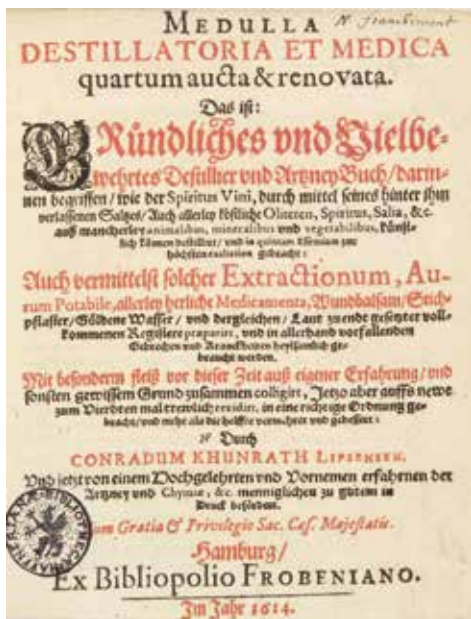 MEDULLA
DESTILLATORIA ET MEDICA
quartum aucta & renovata.
Das ist:
Gründliches vnd Vielbe-
wehrtes Destillier vnd Artzney Buch/ darin-
nen begriffen/ wie der Spiritus Vini, durch mittel seines hinter ihm
verlassenen Saltzes/ Auch allerley köstliche Oliteten, Spiritus, Salia, &c.
auß mancherley animalibus, mineralibus vnd vegetabilibus, künst-
lich können destillirt/ vnd in quintam Essentiam zur
höchsten exaltation gebracht:
Auch vermittelst solcher Extractionum, Au-
rum Potabile, allerley herliche Medicamenta, Wundbalsam/ Stich-
pflaster/ Göldene Wasser/ vnd dergleichen/ Laut zu endt gesetzter voll-
kommenen Registere præparirt, vnd in allerhand vorfallenden
Gebrechen vnd Kranckheiten heylsamlich ge-
braucht werden.
Mit besonderm fleiß vor dieser Zeit auß eigener Erfahrung/ vnd
sonsten gewissem Grund zusammen colligirt, Jetzo aber auffs newe
zum Vierdten mal trewlich revidirt, in eine richtige Ordnung ge-
bracht/ vnd mehr als die helffte vermehret vnd gebessert:
Durch
CONRADUM KHUNRATH LIPSENSEM.
Vnd jetzt von einem Hochgelehrten vnd Vornemen erfahrnen der
Artzney vnd Chymiæ, &c. menniglichen zu gutem in
Druck befördert.
Cum Gratia & Privilegio Sac. Cæs. Majestatis.
Hamburg/
Ex Bibliopolio FROBENIANO.
Im Jahr 1614.